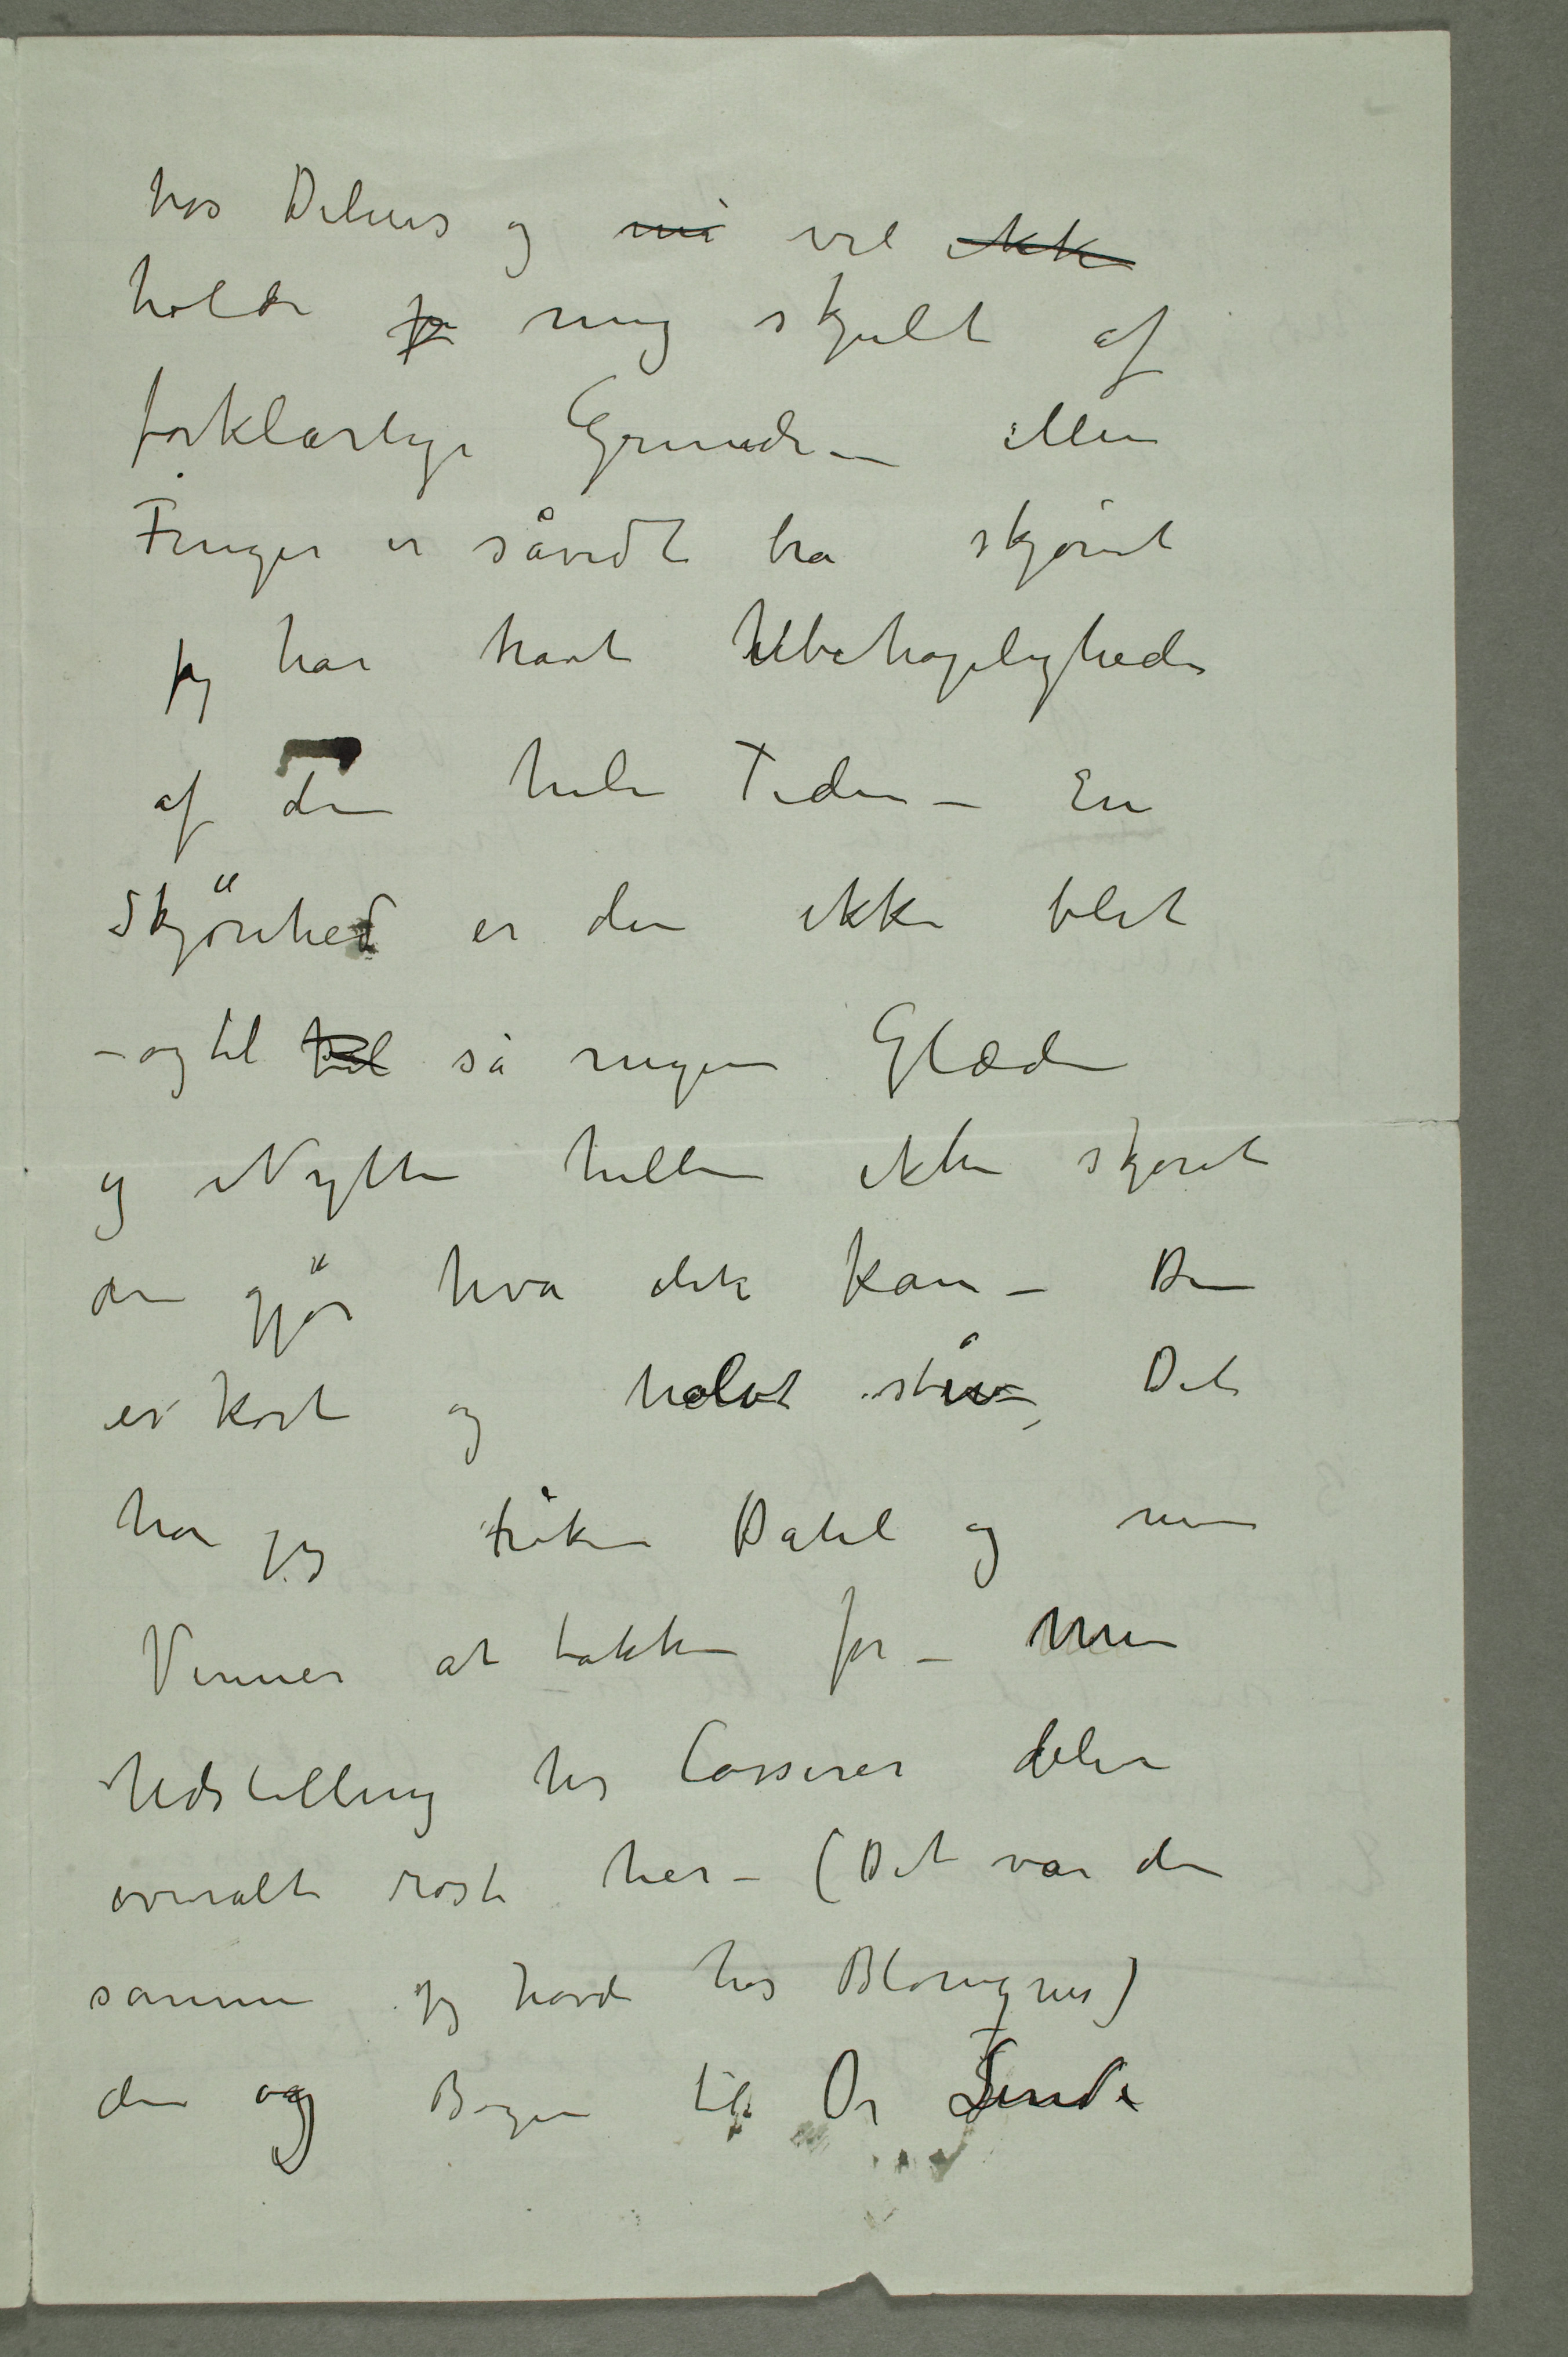 hos Delius og må vil ikke
holde jeg mig skjult af
forklarlige Grunde – Min
Finger er såvidt bra skjønt
jeg har havt Ubehageligheder
af den hele Tiden – En
Skjönhed er den ikke blet
– og til til så megen Glæde
og Nytte heller ikke skjønt
den gjör hva den kan – Den
er kort og halvt stiv, Det
har jeg Frøken Dahl og mine
Venner at takke for – Min
Udstilling hos Cassirer blir
overalt rost her – (Det var den
samme jeg havde hos Blomqvist)
den og Bogen til Dr Linde